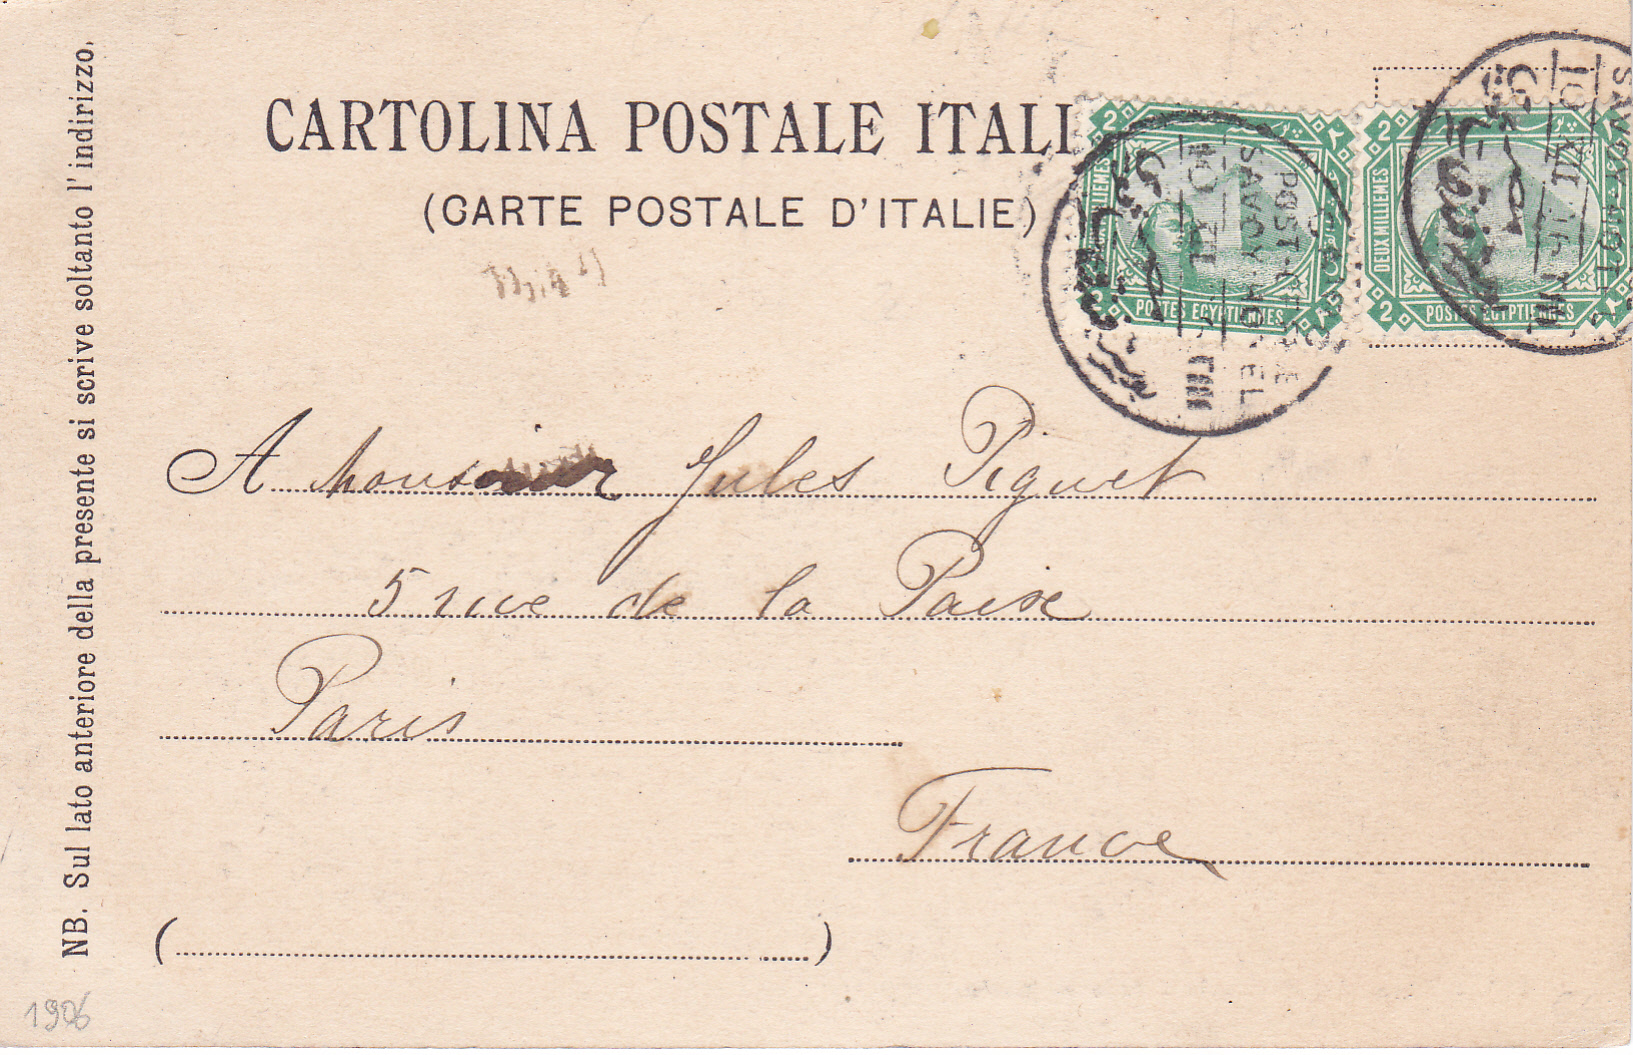 CARTOLINA POSTALE ITALI
(CARTE POSTALE D'ITALIE)
NB. Sul lato anteriore della presente si scrive soltanto l'indirizzo.
2 2
MILLIEMES
2
POSTES EGYPTIENNES
2
DEUX MILLIEMES
2
POSTES EGYPTIENNES
POST
SAVOY HOTEL
SAVOY HOTEL
A Monsieur Jules Piguet
5 rue de la Paixe
Paris
France
( )
1906